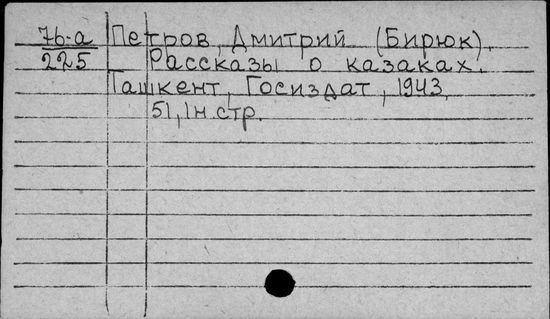 76-а Петров, Дмитрий (Бирюк).
225 Рассказы о казаках.
Ташкент, Госиздат, 1943.
51, 1н.стр.